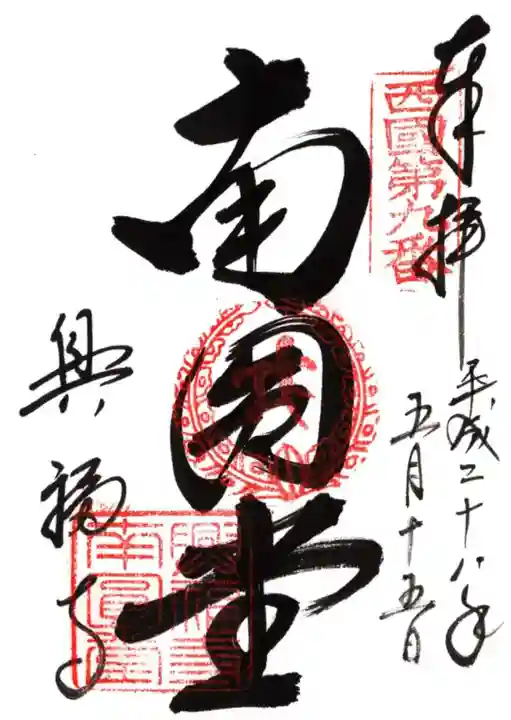 奉拝
西國第九番
平成二十八年
五月十五日
南圓堂
興福寺
興福寺
南圓堂